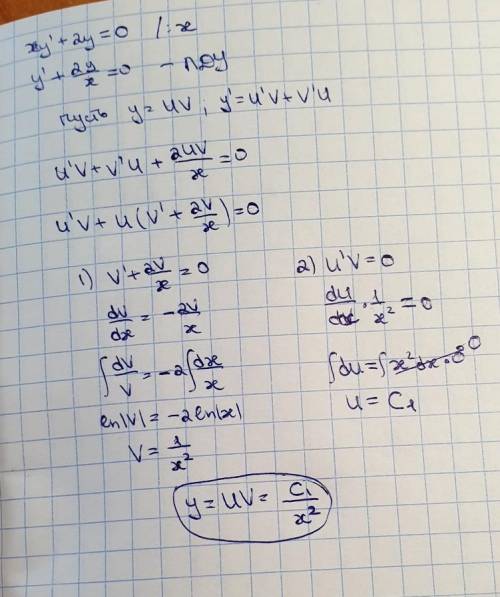 xy' + 2y = 0 /:x
y' + 2y/x = 0 – ЛДУ
пусть y = UV; y' = U'V + V'U
U'V + V'U + 2UV/x = 0
U'V + U(V' + 2V/x) = 0
1) V' + 2V/x = 0
dV/dx = -2V/x
∫ dV/V = -2∫ dx/x
ln|V| = -2ln|x|
V = 1/x²
2) U'V = 0
dU/dx · 1/x² = 0
∫dU = ∫x²dx·0 0
U = C₁
y = UV = C₁/x²